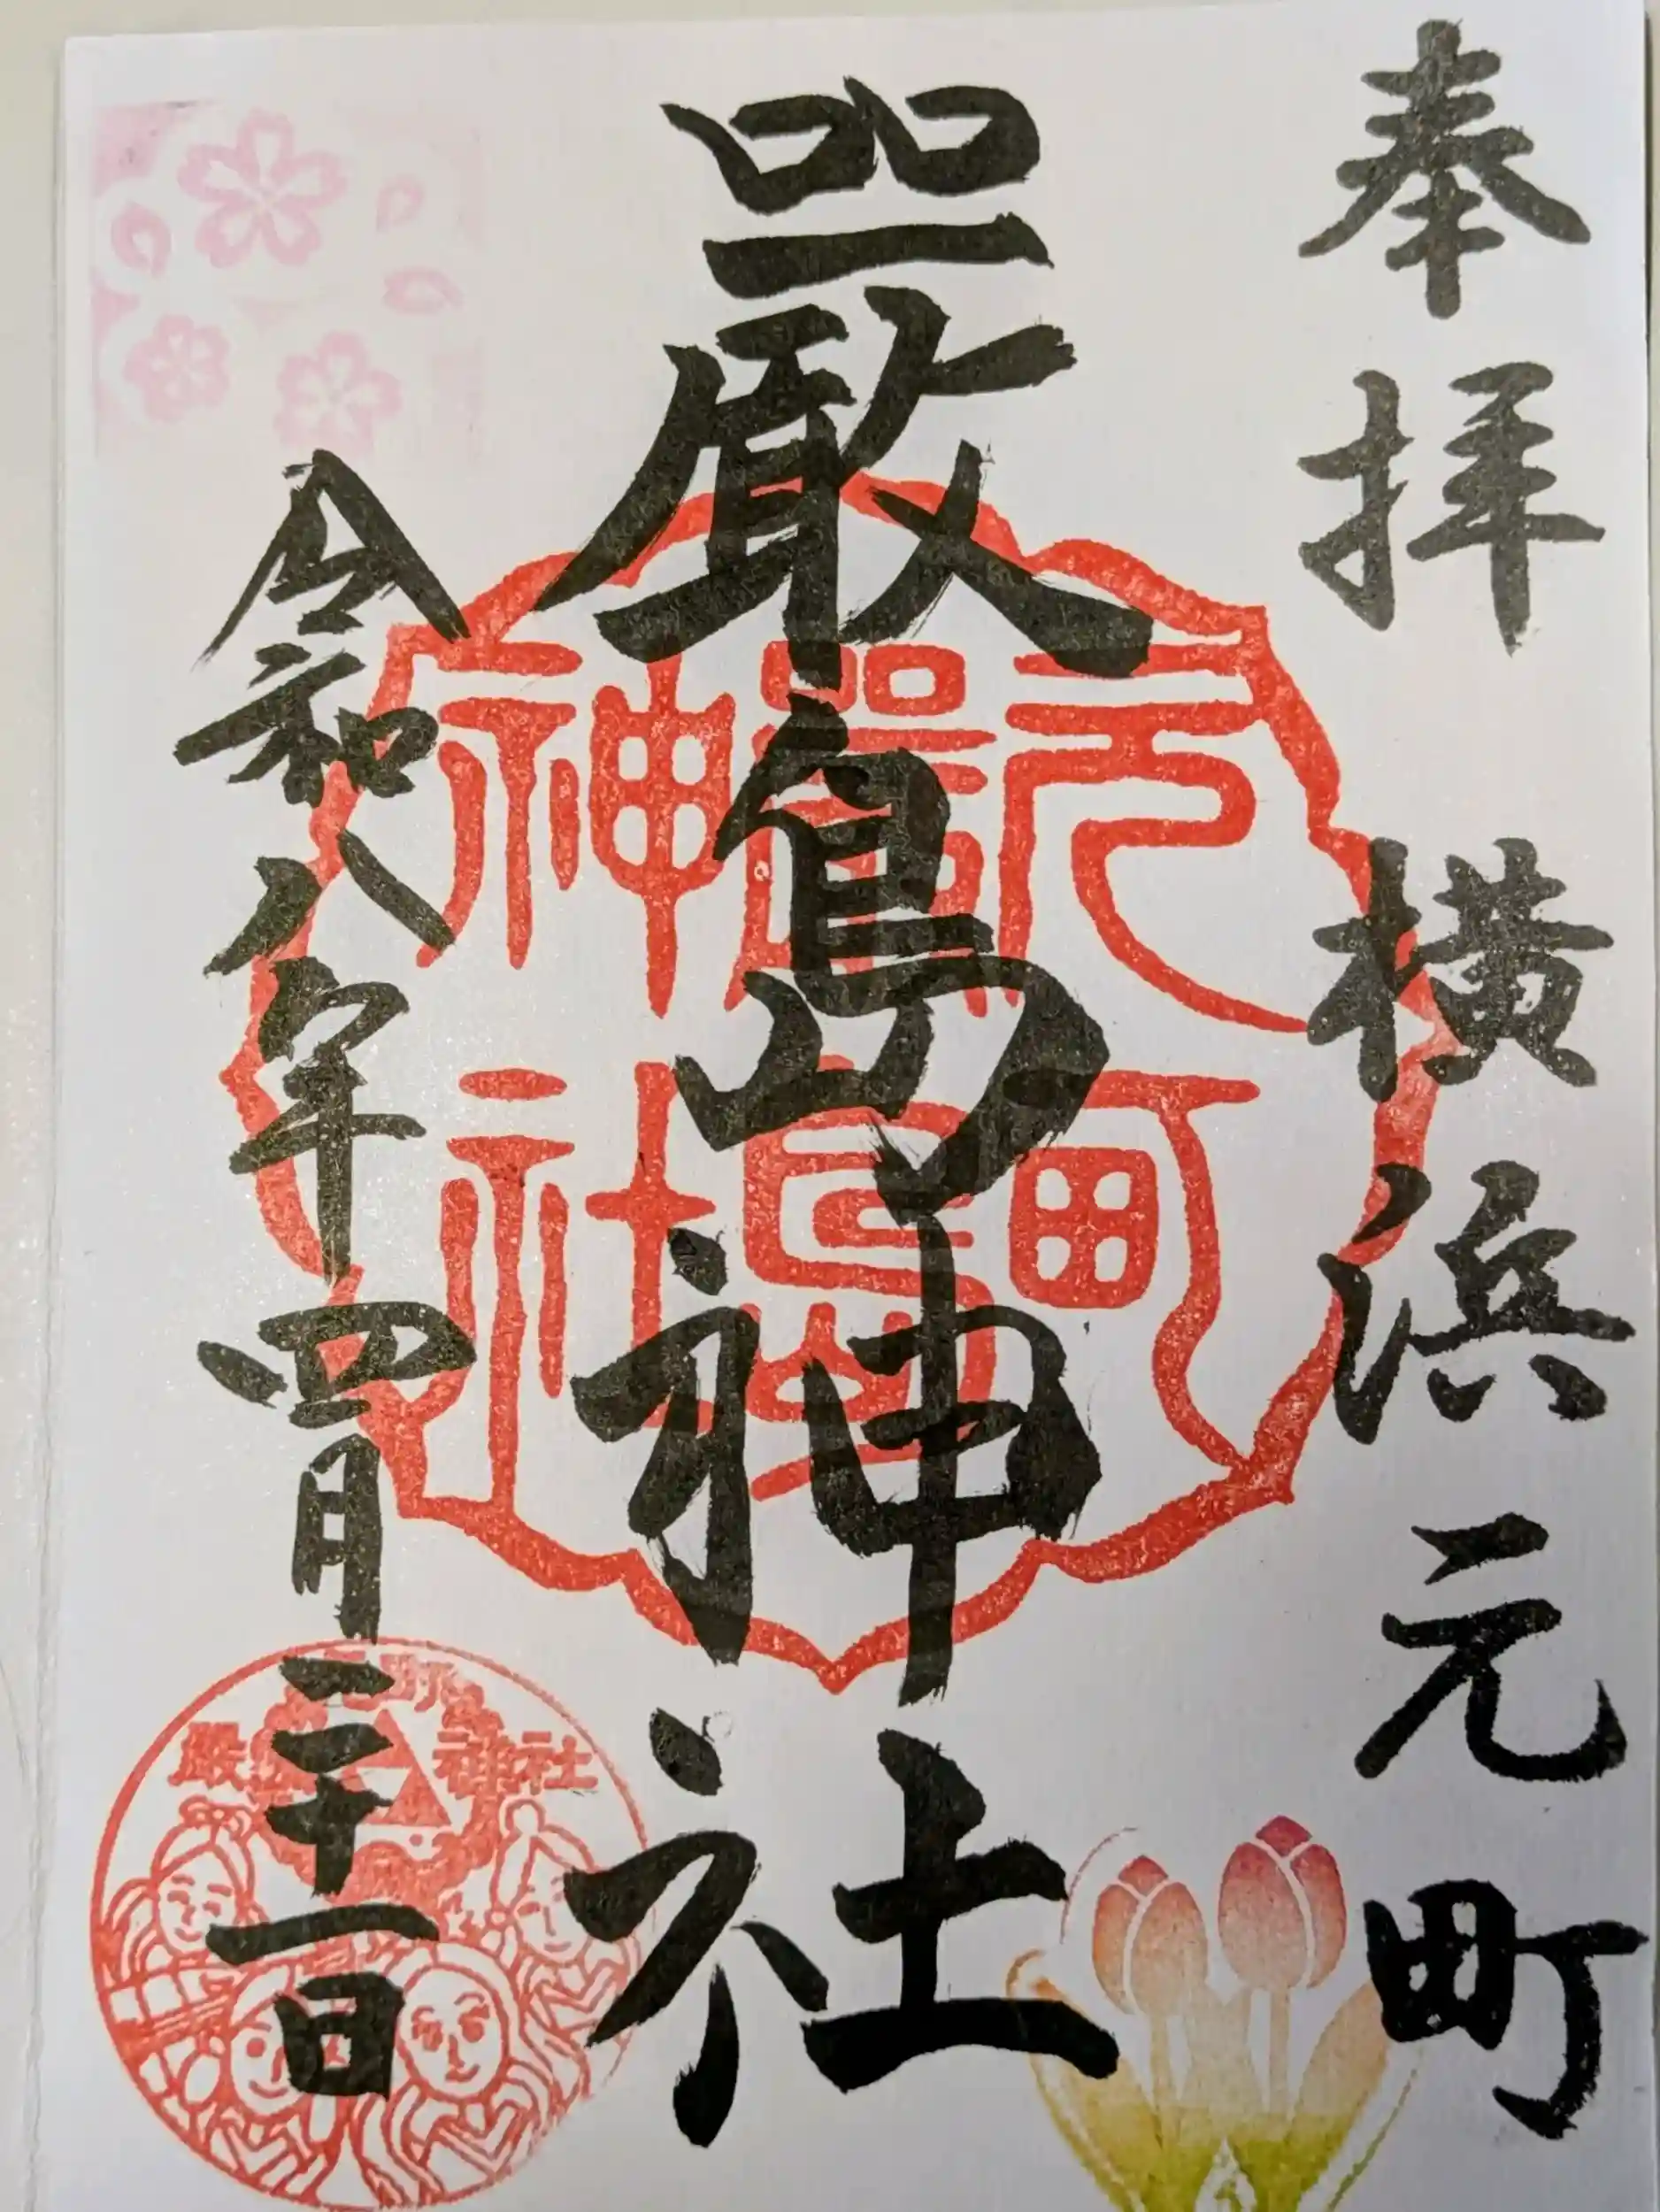 奉拝 横浜元町
嚴島神社
令和八年四月二十一日
元町
嚴島
神社
嚴島神社